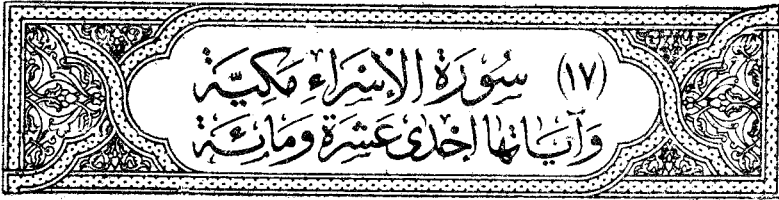 (١٧) سُورَةُ الإِسْرَاءِ مَكِيَّة
وَآيَاتُهَا إِحْدَى عَشْرَةَ وَمَائَة